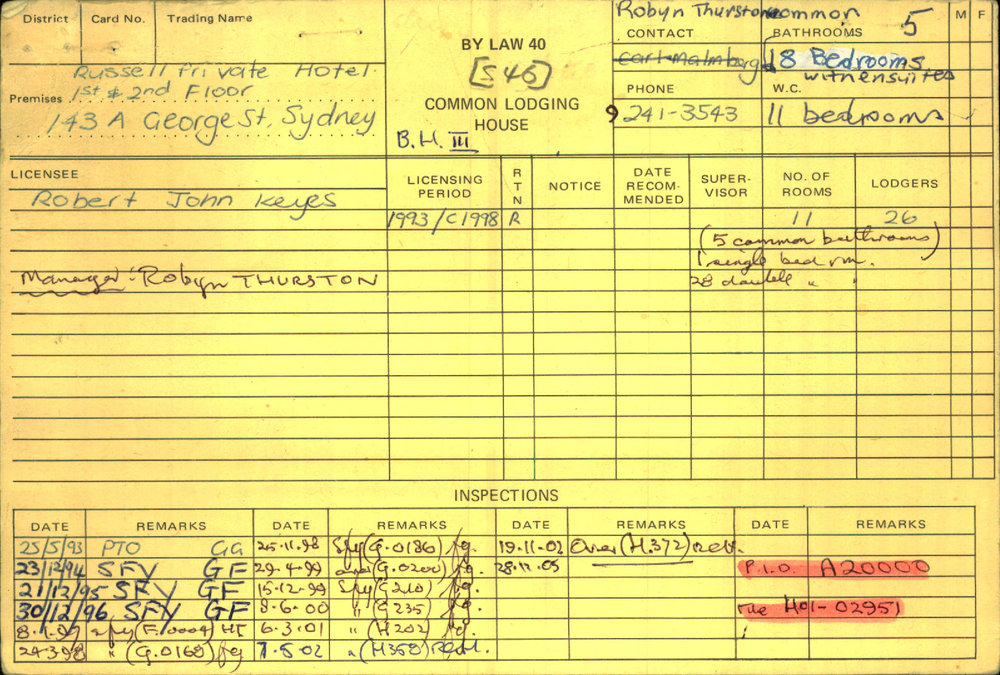 District Card No. Trading Name
Robyn Thurston common 5 M F
CONTACT BATHROOMS
BY LAW 40
[S46]
Carl Malmberg 18 Bedrooms
with ensuites
Russell Private Hotel.
Premises 1st & 2nd Floor
PHONE W.C.
COMMON LODGING
HOUSE
143 A George St, Sydney
9 241-3543 11 bedrooms
B.H. III
LICENSEE LICENSING PERIOD RTN NOTICE DATE RECOM-MENDED SUPER-VISOR NO. OF ROOMS LODGERS
Robert John Keyes
1993/C1998 R 11 26
(5 common bathrooms)
1 single bed rm.
Manager: Robyn THURSTON
28 double " "
INSPECTIONS
DATE REMARKS DATE REMARKS DATE REMARKS DATE REMARKS
25/5/93 PTO GG 25.11.98 Sfy (G.0186) fg. 19.11.02 Over (H.372)
23/12/94 SFY GF 29-4-99 (G.0200) fg. 28.11.05 P.I.O. A20000
21/12/95 SFY GF 15.12.99 Sfy (G210) fg.
30/12/96 SFY GF 8-6-00 " (G235) fg. File H01-02951
8-1-97 sfy (F.0004) HI 6.3.01 " (H202) fg.
24.3.98 " (G.0168) fg 7.5.02 " (H358)